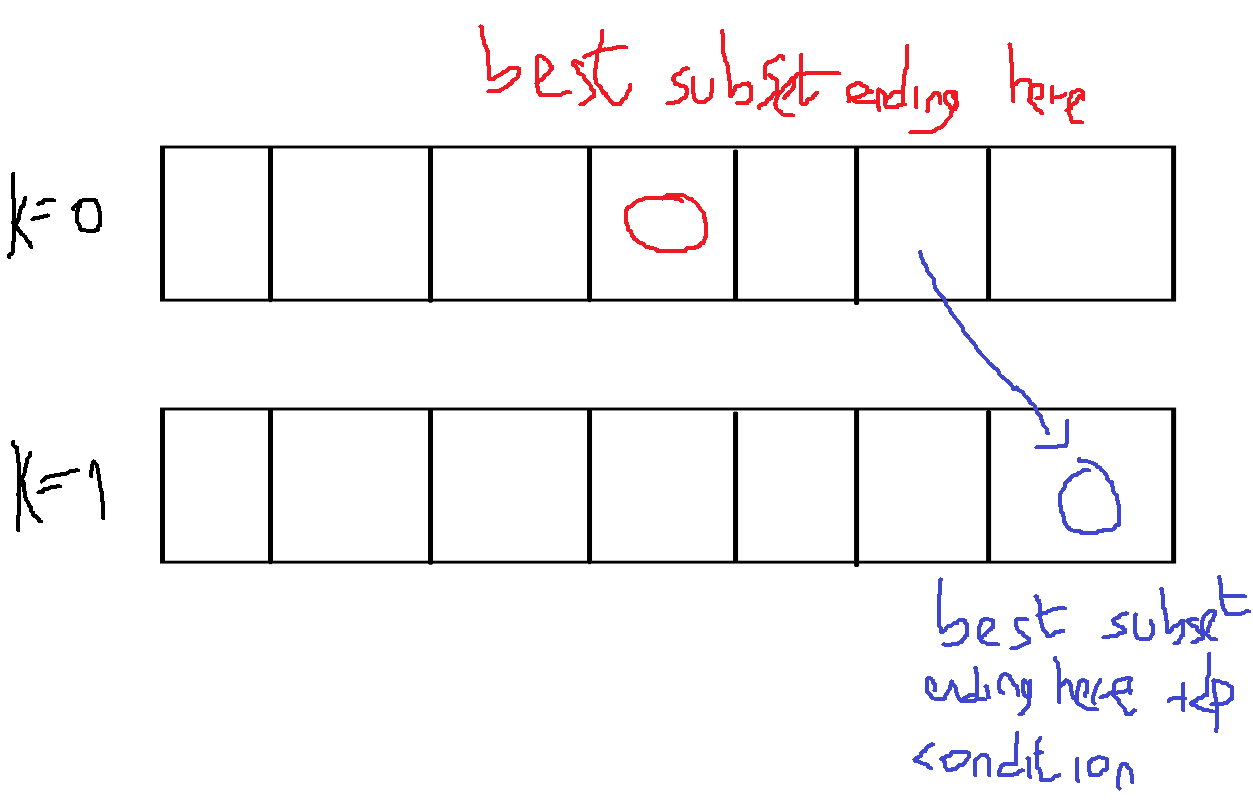 best subset ending here
k=0
k=1
best subset
ending here +dp
condition